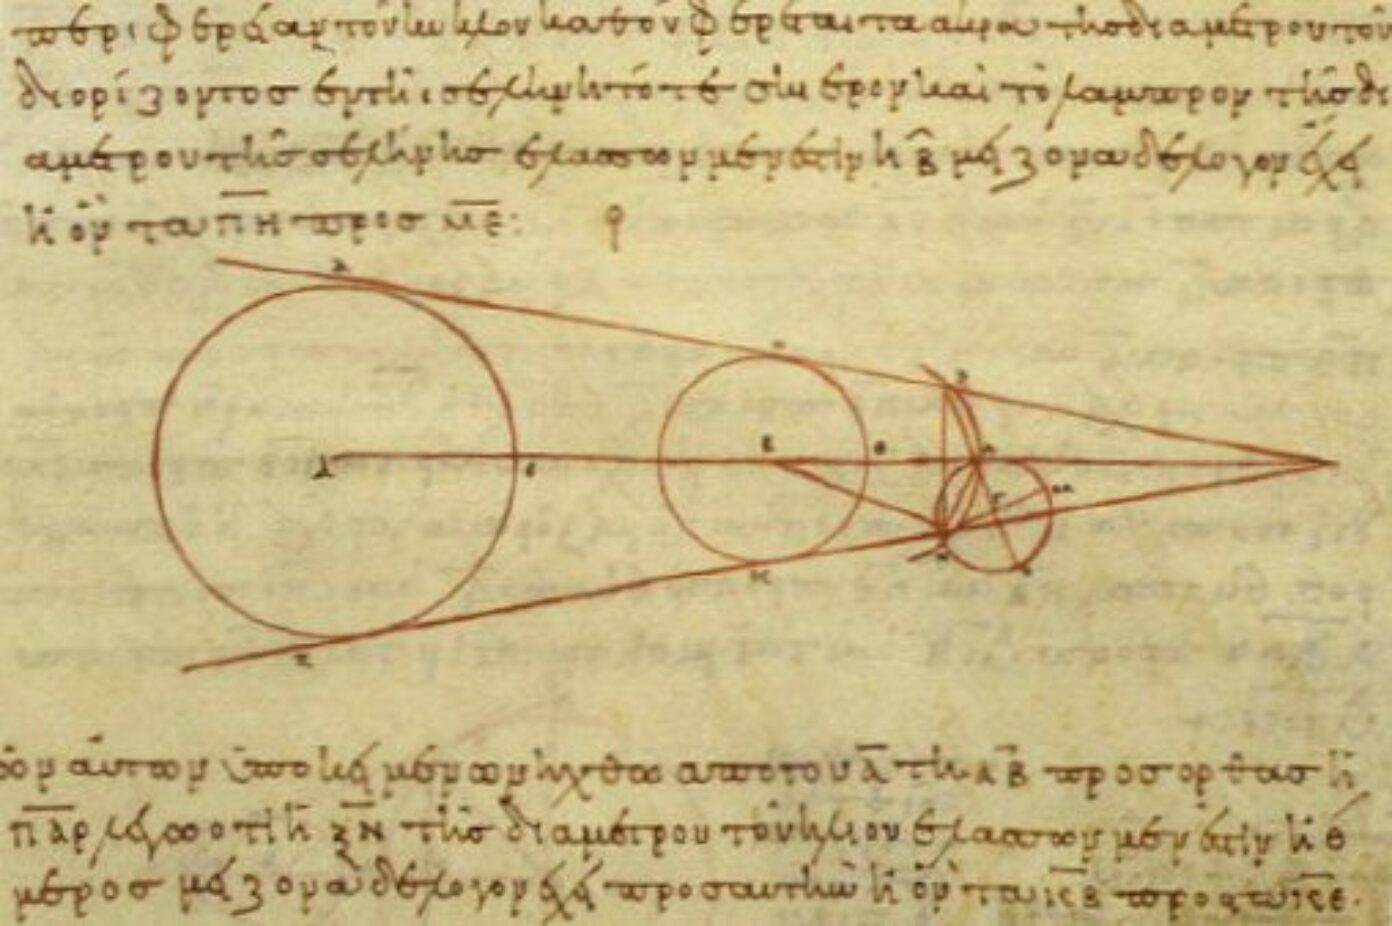 περιφέρειαν τοῦ κύκλου καθ' οὗ φέρεται τὰ ἄκρα τῆς διαμέτρου τοῦ
διορίζοντος ἐν τῆι σελήνηι τό τε σκιερὸν καὶ τὸ λαμπρὸν τῆς δι
αμέτρου τῆς σελήνης ἐλάσσων μέν ἐστιν ἢ β̄ μείζονα δὲ λόγον ἔχει
ἢ ὃν τὰ π̄η̄ πρὸς μ̄ε̄:
αὐτῶν ὑποκειμένων ἤχθω ἀπὸ τοῦ Λ̄ τῆι Λ̄Β̄ πρὸς ὀρθὰς ἡ
λέγω ὅτι ἡ Ξ̄Ν̄ τῆς διαμέτρου τοῦ ἡλίου ἐλάσσων μέν ἐστιν ἢ θ
μέρος μείζονα δὲ λόγον ἔχει πρὸς αὐτὴν ἢ ὃν τὰ κ̄β̄ πρὸς